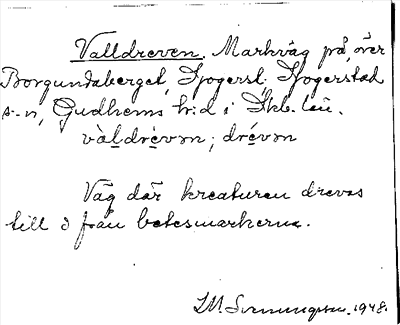 Valldreven. Markväg på, över
Borgundaberget, Sjogerst. Sjogerstad
s-n, Gudhems h:d i Skb. län.
vàldrévɘn; drévɘn
Väg där kreaturen drevos
till o från betesmarkerna.
1948.